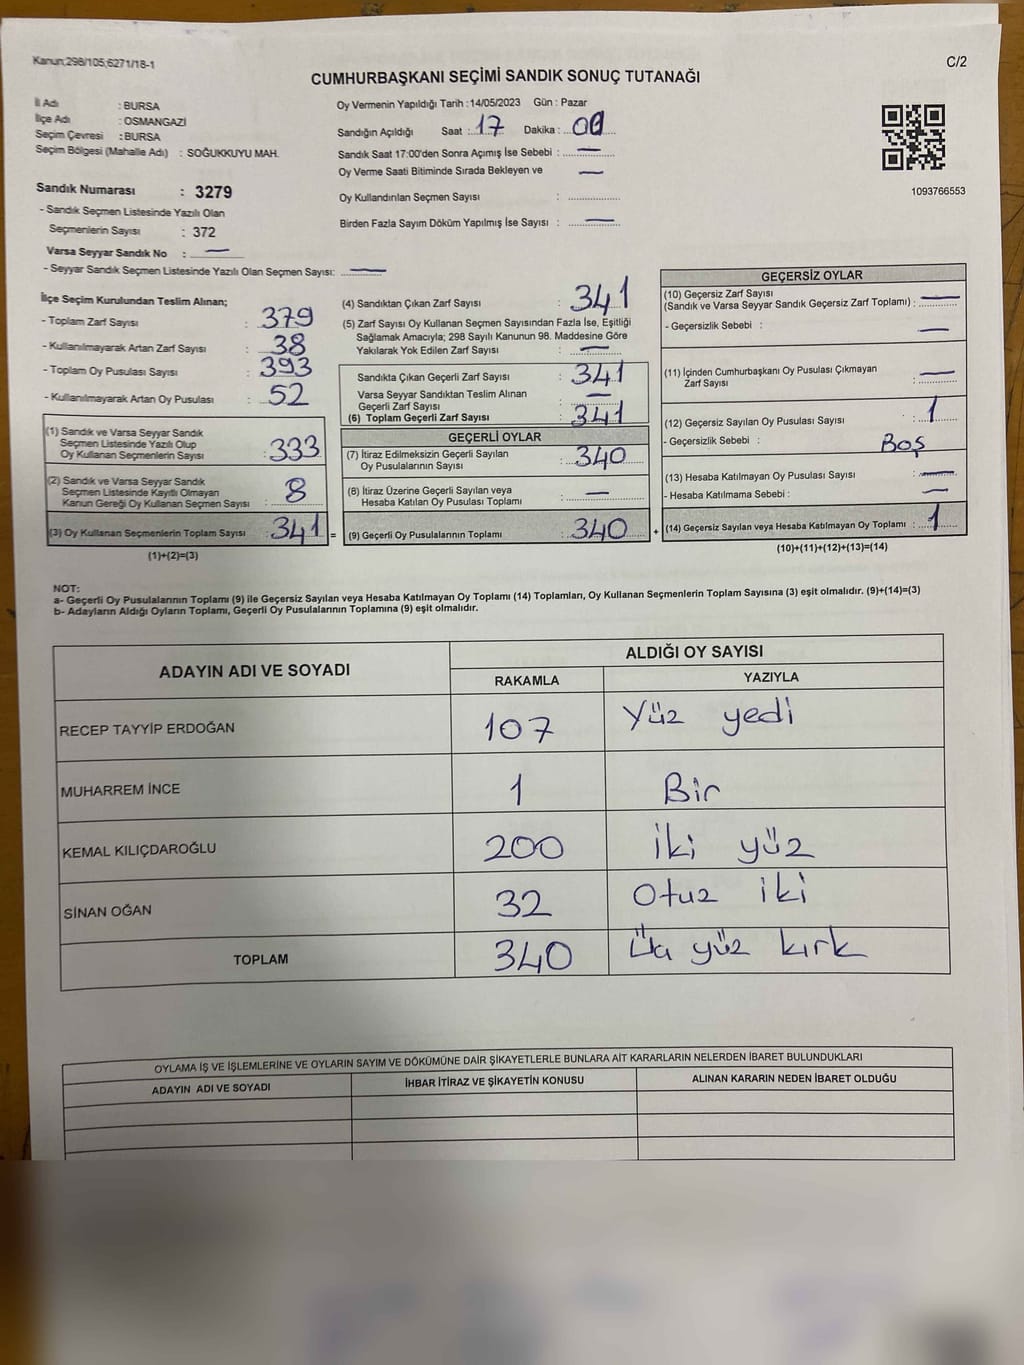 Kanun;298/105,6271/18-1
C/2
CUMHURBAŞKANI SEÇİMİ SANDIK SONUÇ TUTANAĞI
İl Adı : BURSA
İlçe Adı : OSMANGAZİ
Seçim Çevresi : BURSA
Seçim Bölgesi (Mahalle Adı) : SOĞUKKUYU MAH.
Oy Vermenin Yapıldığı Tarih : 14/05/2023 Gün : Pazar
Sandığın Açıldığı Saat : 17 Dakika : 00
Sandık Saat 17:00'den Sonra Açımış İse Sebebi : —
Oy Verme Saati Bitiminde Sırada Bekleyen ve —
Oy Kullandırılan Seçmen Sayısı :
Birden Fazla Sayım Döküm Yapılmış İse Sayısı : —
1093766553
Sandık Numarası : 3279
- Sandık Seçmen Listesinde Yazılı Olan
Seçmenlerin Sayısı : 372
Varsa Seyyar Sandık No : —
- Seyyar Sandık Seçmen Listesinde Yazılı Olan Seçmen Sayısı: —
İlçe Seçim Kurulundan Teslim Alınan;
- Toplam Zarf Sayısı : 379
- Kullanılmayarak Artan Zarf Sayısı : 38
- Toplam Oy Pusulası Sayısı : 393
- Kullanılmayarak Artan Oy Pusulası : 52
(1) Sandık ve Varsa Seyyar Sandık
Seçmen Listesinde Yazılı Olup
Oy Kullanan Seçmenlerin Sayısı : 333
(2) Sandık ve Varsa Seyyar Sandık
Seçmen Listesinde Kayıtlı Olmayan
Kanun Gereği Oy Kullanan Seçmen Sayısı : 8
(3) Oy Kullanan Seçmenlerin Toplam Sayısı : 341 =
(1)+(2)=(3)
(4) Sandıktan Çıkan Zarf Sayısı : 341
(5) Zarf Sayısı Oy Kullanan Seçmen Sayısından Fazla İse, Eşitliği
Sağlamak Amacıyla; 298 Sayılı Kanunun 98. Maddesine Göre
Yakılarak Yok Edilen Zarf Sayısı : —
Sandıkta Çıkan Geçerli Zarf Sayısı : 341
Varsa Seyyar Sandıktan Teslim Alınan —
Geçerli Zarf Sayısı
(6) Toplam Geçerli Zarf Sayısı : 341
GEÇERLİ OYLAR
(7) İtiraz Edilmeksizin Geçerli Sayılan
Oy Pusulalarının Sayısı : 340
(8) İtiraz Üzerine Geçerli Sayılan veya
Hesaba Katılan Oy Pusulası Toplamı : —
(9) Geçerli Oy Pusulalarının Toplamı : 340 +
GEÇERSİZ OYLAR
(10) Geçersiz Zarf Sayısı
(Sandık ve Varsa Seyyar Sandık Geçersiz Zarf Toplamı) : —
- Geçersizlik Sebebi : —
(11) İçinden Cumhurbaşkanı Oy Pusulası Çıkmayan
Zarf Sayısı : —
(12) Geçersiz Sayılan Oy Pusulası Sayısı : 1
- Geçersizlik Sebebi : Boş
(13) Hesaba Katılmayan Oy Pusulası Sayısı : —
- Hesaba Katılmama Sebebi : —
(14) Geçersiz Sayılan veya Hesaba Katılmayan Oy Toplamı : 1
(10)+(11)+(12)+(13)=(14)
NOT:
a- Geçerli Oy Pusulalarının Toplamı (9) ile Geçersiz Sayılan veya Hesaba Katılmayan Oy Toplamı (14) Toplamları, Oy Kullanan Seçmenlerin Toplam Sayısına (3) eşit olmalıdır. (9)+(14)=(3)
b- Adayların Aldığı Oyların Toplamı, Geçerli Oy Pusulalarının Toplamına (9) eşit olmalıdır.
ADAYIN ADI VE SOYADI ALDIĞI OY SAYISI
RAKAMLA YAZIYLA
RECEP TAYYİP ERDOĞAN 107 Yüz yedi
MUHARREM İNCE 1 Bir
KEMAL KILIÇDAROĞLU 200 İki yüz
SİNAN OĞAN 32 Otuz iki
TOPLAM 340 Üç yüz kırk
OYLAMA İŞ VE İŞLEMLERİNE VE OYLARIN SAYIM VE DÖKÜMÜNE DAİR ŞİKAYETLERLE BUNLARA AİT KARARLARIN NELERDEN İBARET BULUNDUKLARI
ADAYIN ADI VE SOYADI İHBAR İTİRAZ VE ŞİKAYETİN KONUSU ALINAN KARARIN NEDEN İBARET OLDUĞU